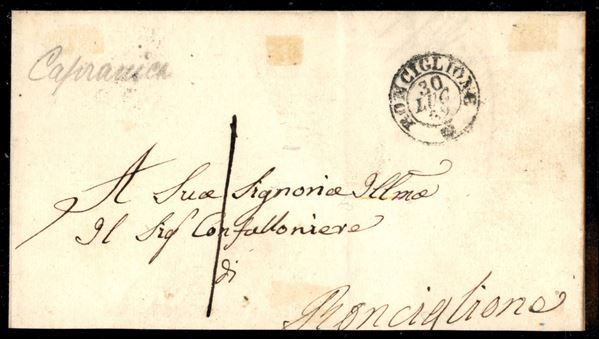 Capranica
RONCIGLIONE
30
LUG
59
A Sua Signoria Illma
Il Sig Confalloniere
di
Ronciglione